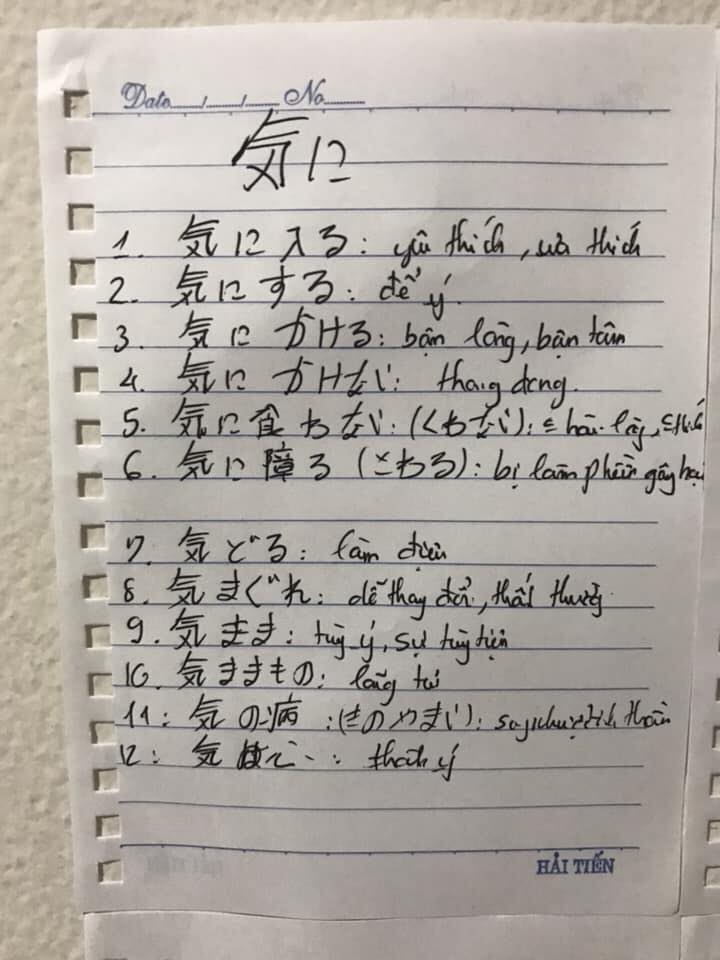 Date___/___/___ No____
気に
1. 気に入る: yêu thích, ưa thích
2. 気にする: để ý.
3. 気にかける: bận lòng, bận tâm
4. 気にかけない: thong dong.
5. 気に食わない: (くわない):
6. 気に障る (さわる): bị làm phiền gây hại
7. 気どる: làm điệu
8. 気まぐれ: dễ thay đổi, thất thường.
9. 気まま: tùy ý, sự tùy tiện
10. 気ままもの: lãng tử
11: 気の病: (きのやまい):
12: 気 thành ý
HẢI TIẾN